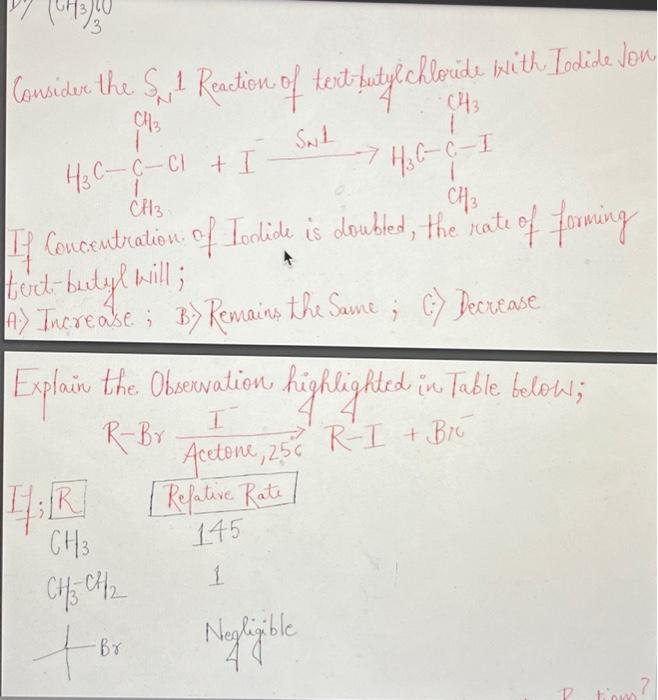 (CH3)3
Consider the SN1 Reaction of tert-butylchloride with Iodide Ion
CH3
H3C-C-Cl + I-
CH3
SN1
CH3
H3C-C-I
CH3
If Concentration of Iodide is doubled, the rate of forming
tert-butyl will;
A:) Increase ; B:) Remains the Same ; C:) Decrease
Explain the Observation highlighted in Table below;
R-Br I- Acetone, 25c R-I + Br-
If; R Relative Rate
CH3 145
CH3-CH2 1
Br Negligible